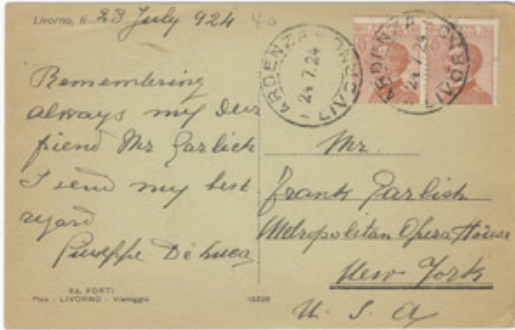 Livorno, li 23 July 924
Remembering
always my Dear
friend Mr Garlich
I send my best
regard
Giuseppe De Luca
Ed. FORTI
Pisa - LIVORNO - Viareggio
ARDENZA
LIVORNO
24.7.24
ARDENZA
LIVORNO
24.7.24
Mr.
Frank Garlich
Metropolitan Opera House
New York
U. S. A